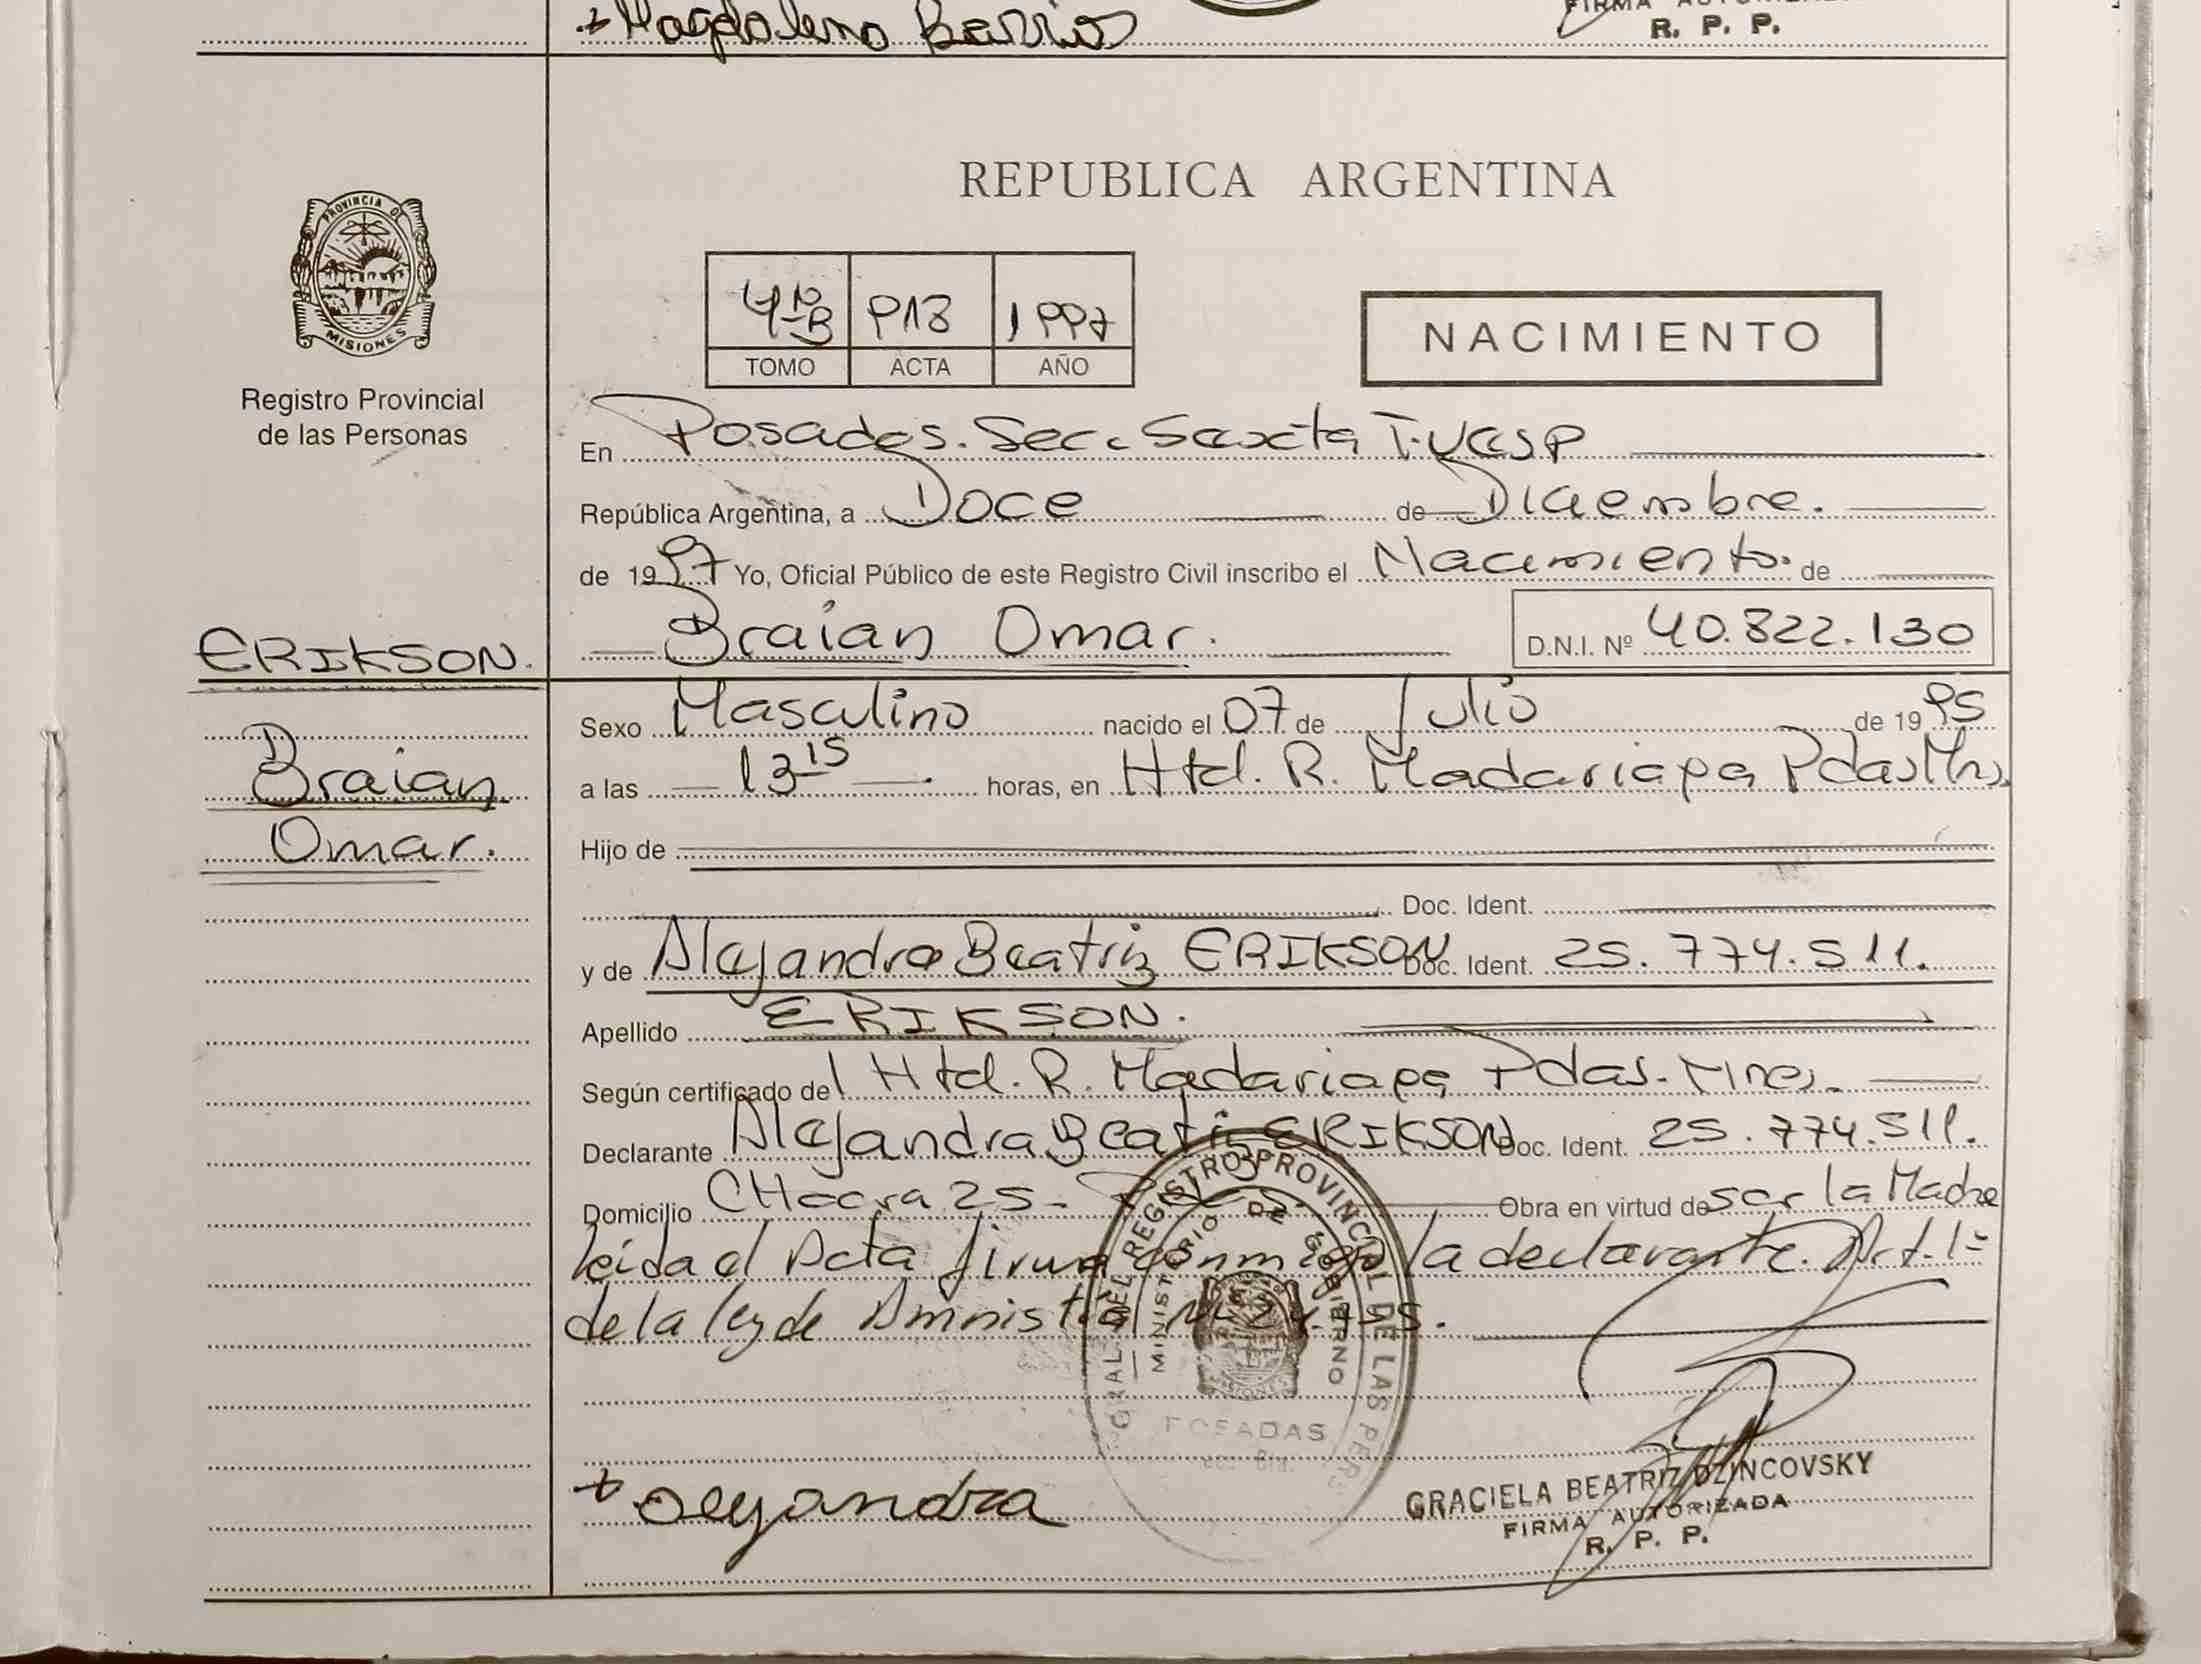 + Magdalena Barrios
FIRMA AUTORIZADA
R. P. P.
PROVINCIA DE
MISIONES
Registro Provincial
de las Personas
REPUBLICA ARGENTINA
913 1997
TOMO ACTA AÑO
NACIMIENTO
En Posadas. Sec. Sexta
República Argentina, a Doce de Diciembre.
de 1997 Yo, Oficial Público de este Registro Civil inscribo el Nacimiento. de
Braian Omar. D.N.I. Nº 40.822.130
ERIKSON.
Braian
Omar.
Sexo Masculino nacido el 07 de Julio de 1995
a las 13 15 horas, en Htal. R. Madariaga Pdas Mns.
Hijo de
Doc. Ident.
y de Alejandra Beatriz ERIKSON Doc. Ident. 25.774.511.
Apellido ERIKSON.
Según certificado del Htal. R. Madariaga Pdas. Mnes.
Declarante Alejandra Beatriz ERIKSON Doc. Ident. 25.774.511.
Domicilio CHacra 25- Pdas. Obra en virtud de ser la Madre
leida el Acta firma conmigo la declarante. Art. 1º
de la ley de Amnistia Nº 24.755.
GRAL. DEL REGISTRO PROVINCIAL DE LAS PERS
MINISTERIO DE GOBIERNO
POSADAS
+ Alejandra
GRACIELA BEATRIZ DZINCOVSKY
FIRMA AUTORIZADA
R. P. P.